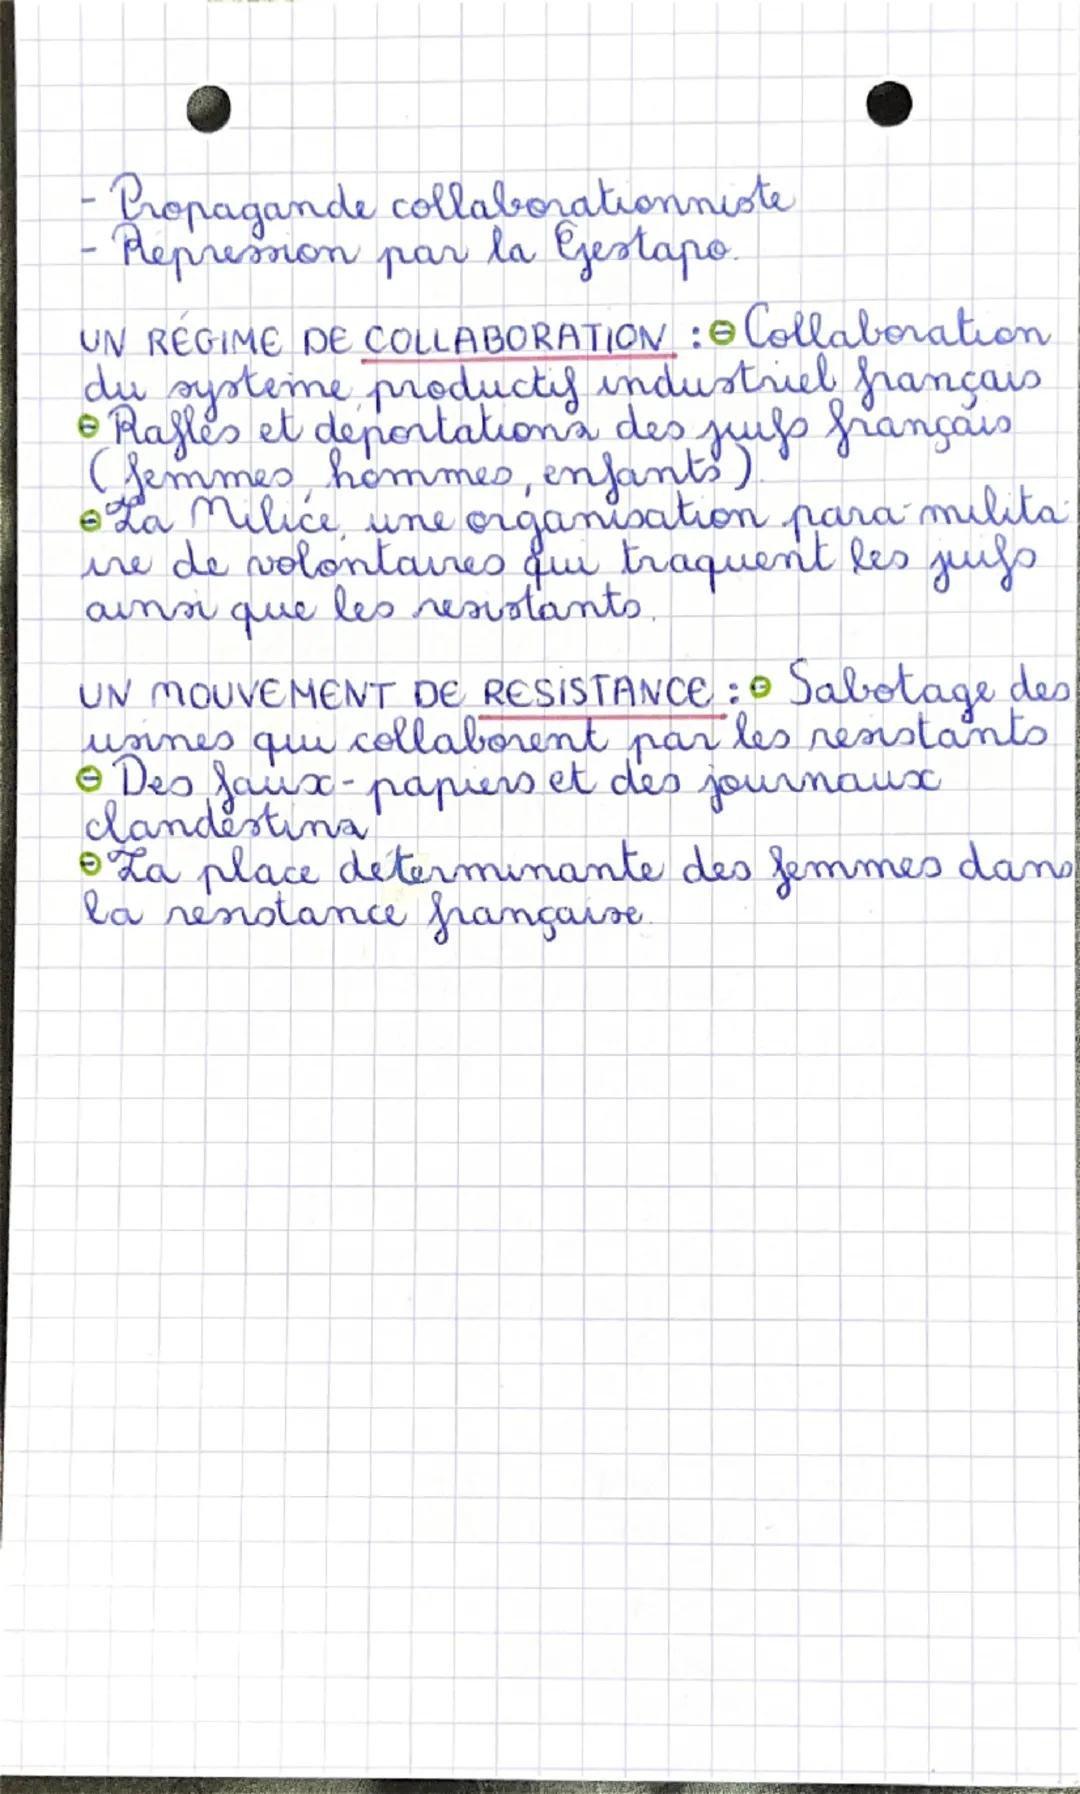 - Propagande collaborationniste
- Répression par la Gestapo.
UN RÉGIME DE COLLABORATION : ⊖ Collaboration
du système productif industriel français
⊖ Rafles et déportations des juifs français
(femmes, hommes, enfants).
⊖ La Milice, une organisation para-milita-
ire de volontaires qui traquent les juifs
ainsi que les résistants.
UN MOUVEMENT DE RESISTANCE : ⊖ Sabotage des
usines qui collaborent par les résistants
⊖ Des faux-papiers et des journaux
clandestins
⊖ La place déterminante des femmes dans
la résistance française.